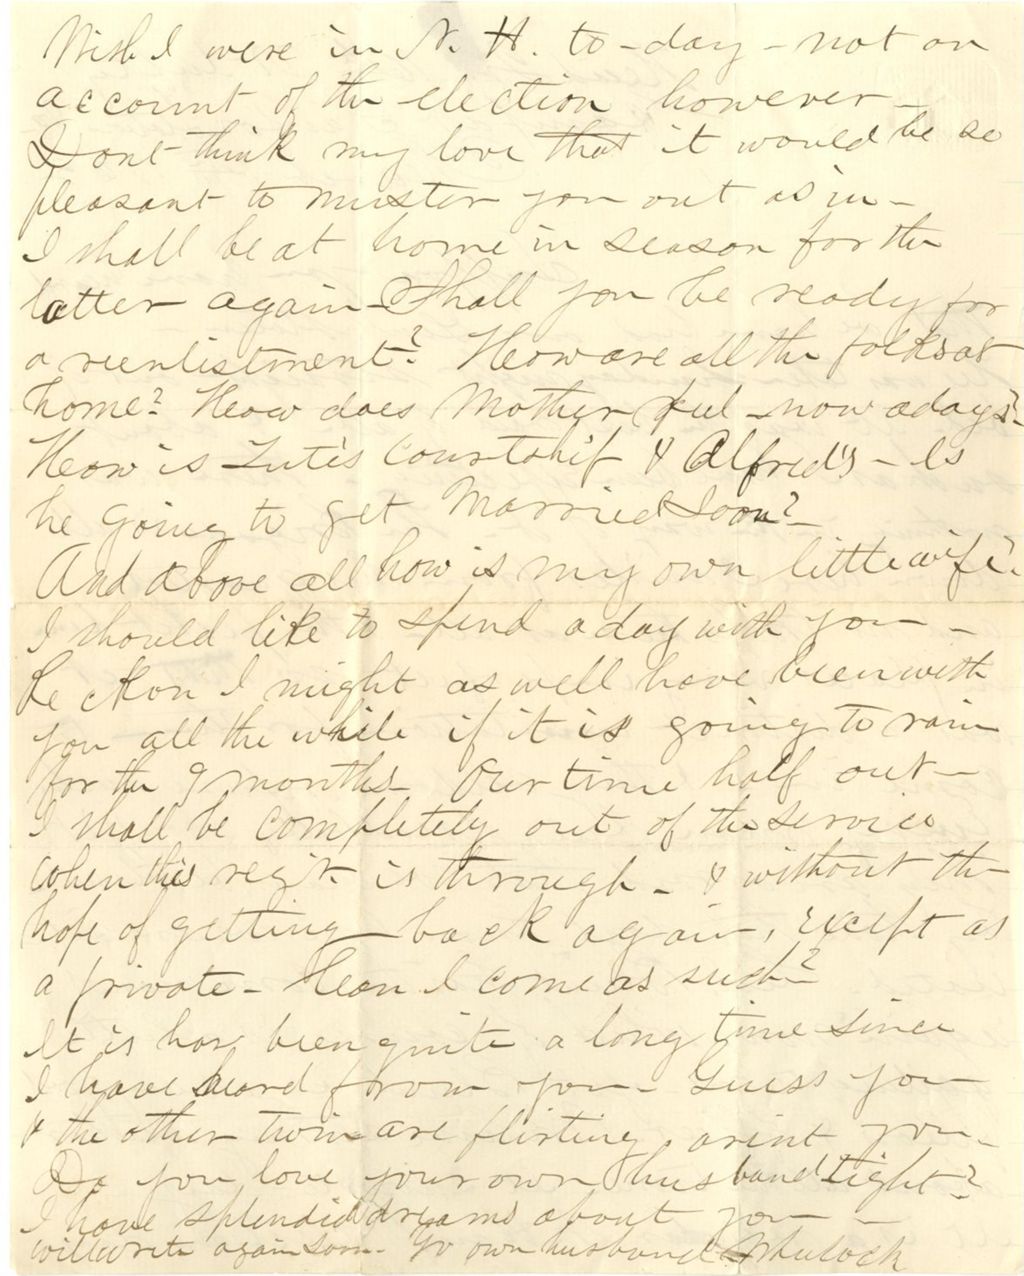 Wish I were in N. H. to-day - not on
account of the election however -
Dont think my love that it would be so
pleasant to muster you out as in -
I shall be at home in season for the
latter again - Shall you be ready for
a reenlistment? How are all the folks at
home? How does Mother feel - now adays? -
How is Lute's courtship & Alfred's - Is
he going to get Married Soon? -
And above all how is my own little wife?
I should like to spend a day with you -
Reckon I might as well have been with
you all the while if it is going to rain
for the 9 months - Our time half out -
I shall be completely out of the service
when this regt. is through - & without the
hope of getting back again, except as
a private - Can I come as such?
It is has been quite a long time since
I have heard from you - Guess you
& the other twin are flirting, arint you -
Do you love your own husband tight?
I have splendid dreams about you -
will write again soon - Yr own husband